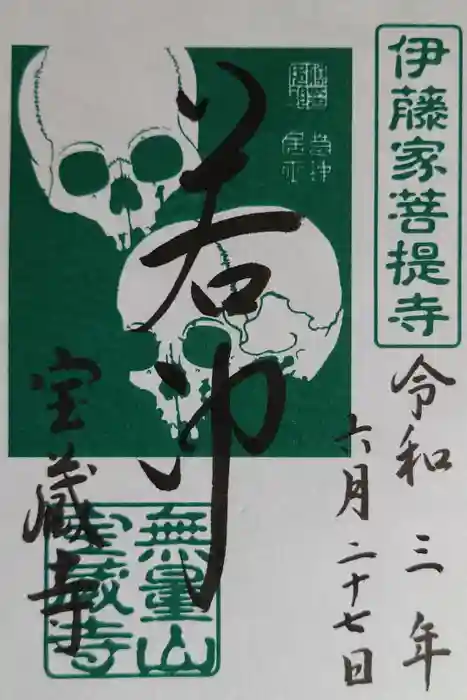 伊藤家菩提寺
令和三年
六月二十七日
若冲
宝蔵寺
無量山
宝蔵寺